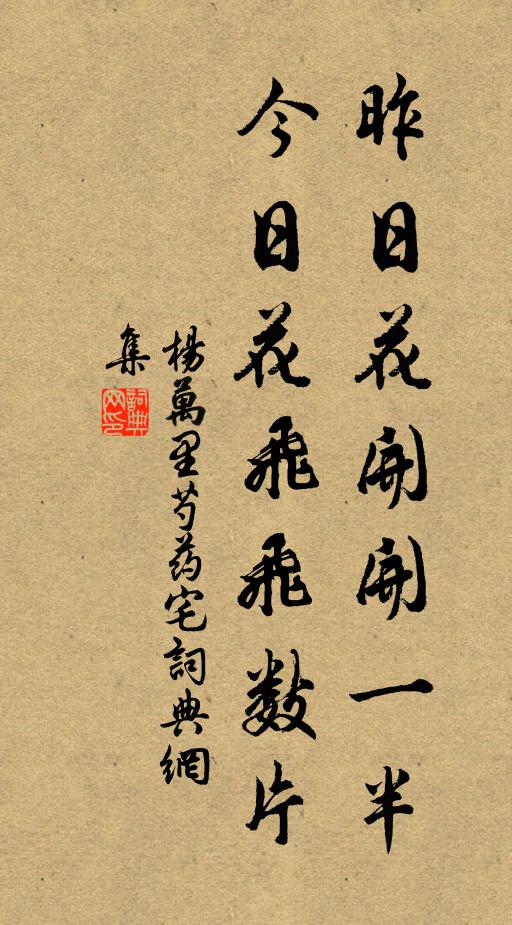 昨日花開開一半
今日花飛飛数片
楊萬里芍药宅詞典網
集
詞典
网印